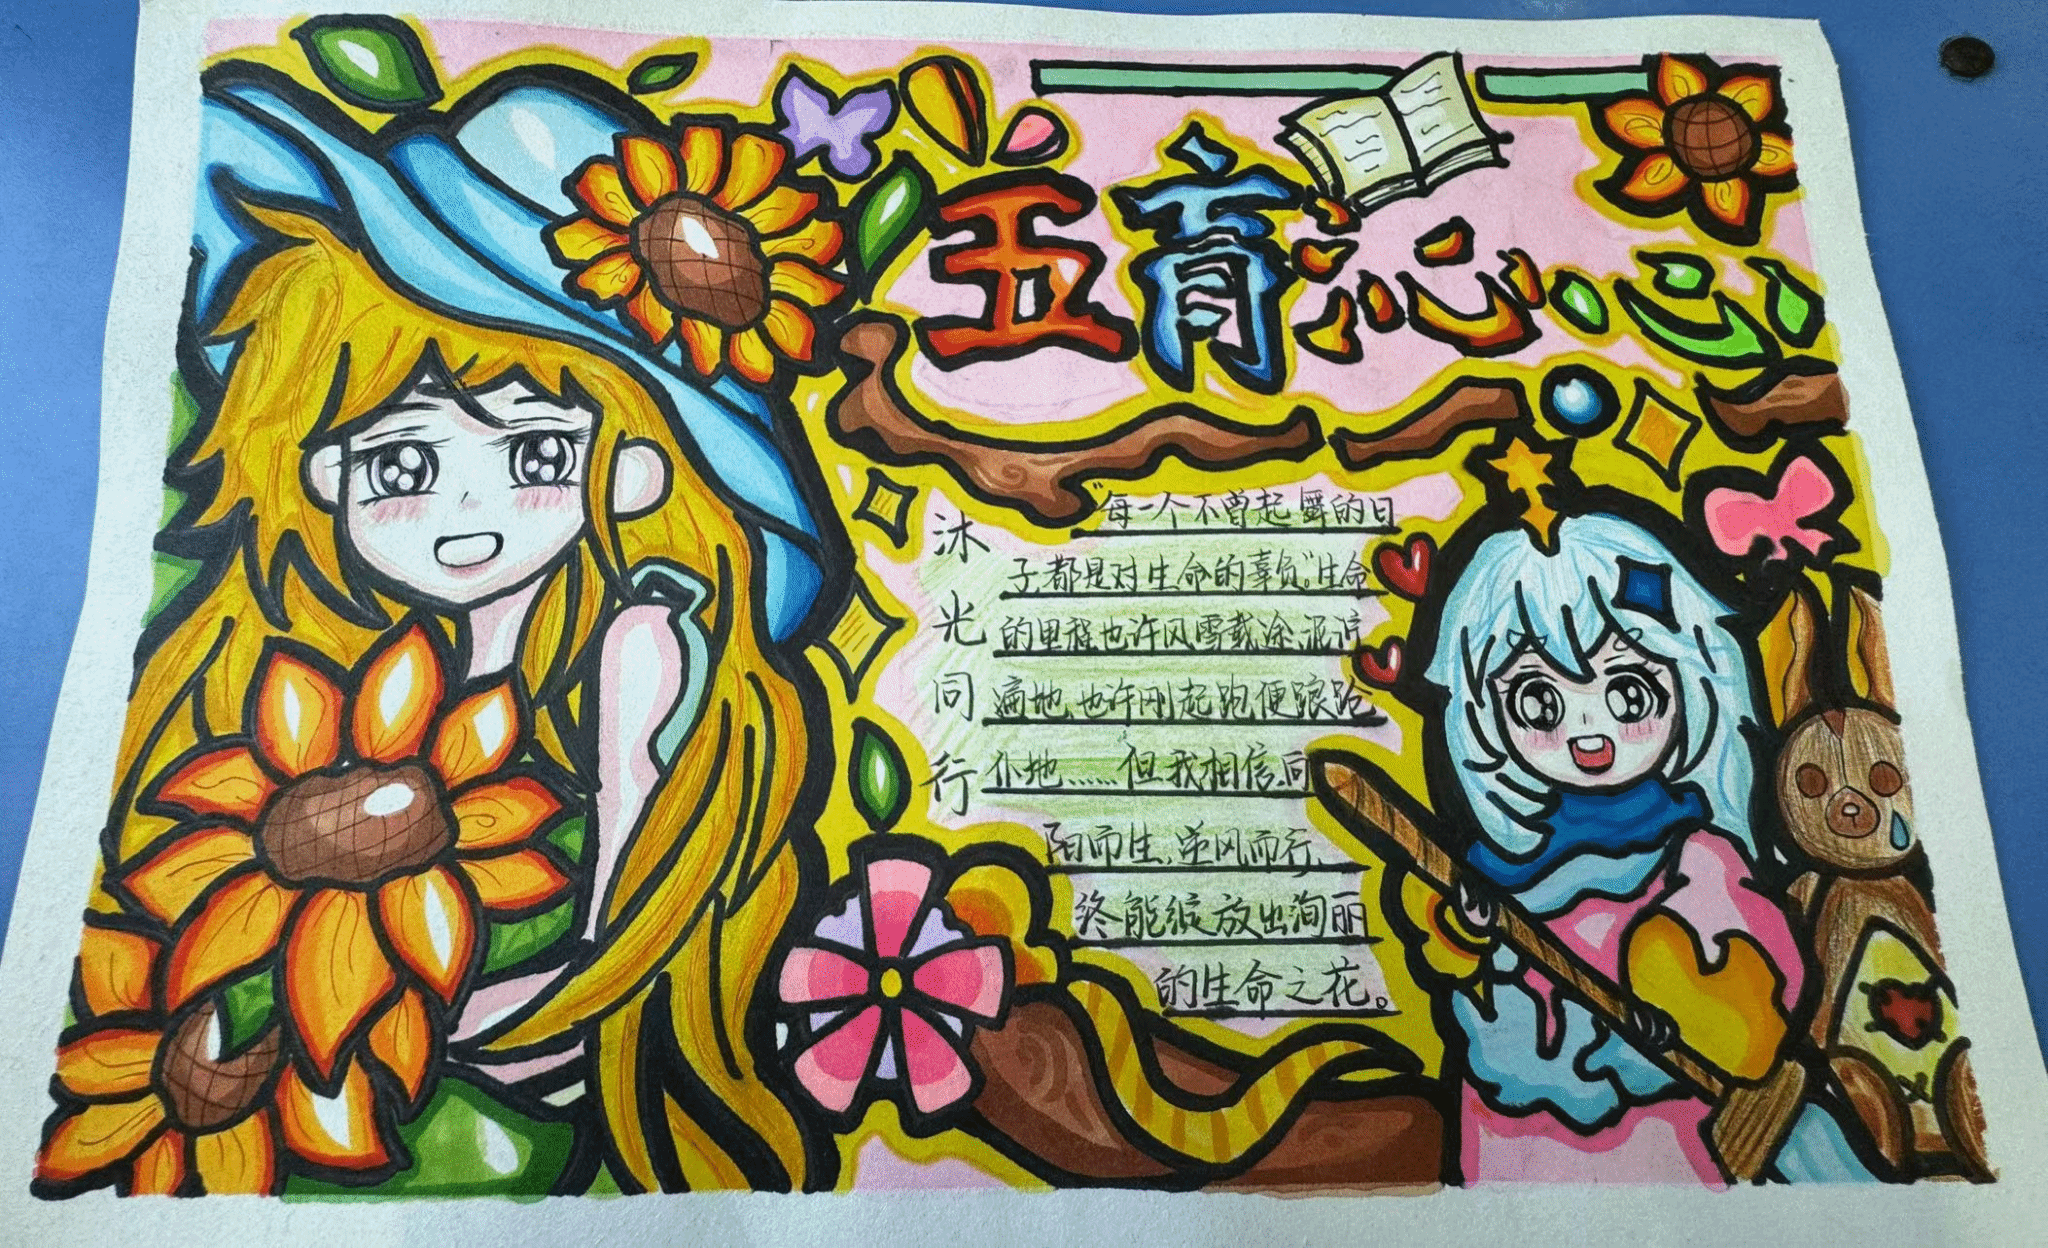 五育沁心
沐光同行
“每一个不曾起舞的日
子都是对生命的辜负”。生命
的里程也许风雪载途、泥泞
遍地,也许刚起跑便踉跄
仆地……但我相信,向
阳而生,逆风而行,
终能绽放出绚丽
的生命之花。